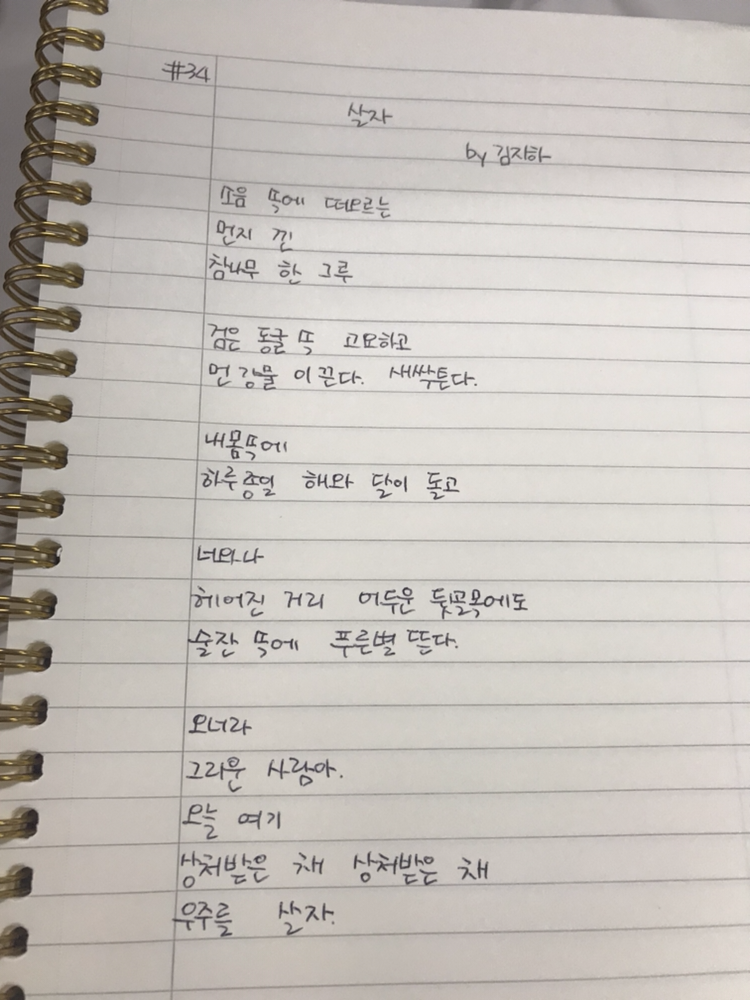 #34
살자
by 김지하
소음 속에 떠오르는
먼지 낀
참나무 한 그루
검은 동굴 속 고요하고
먼 강물 이끈다. 새싹튼다.
내몸속에
하루종일 해와 달이 돌고
너와나
헤어진 거리 어두운 뒷골목에도
술잔 속에 푸른별 뜬다.
오너라
그리운 사람아.
오늘 여기
상처받은 채 상처받은 채
우주를 살자.